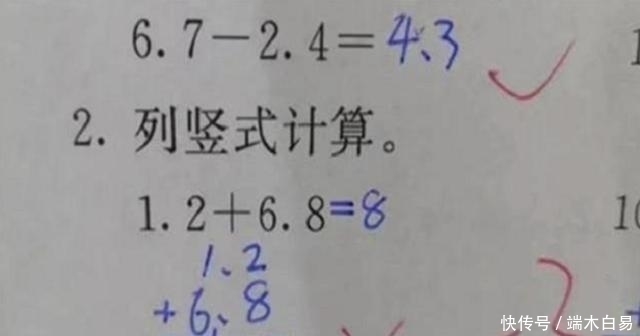 6.7－2.4＝4.3
2. 列竖式计算。
1.2＋6.8=8
1.2
+6.8
快传号 / 端木白易